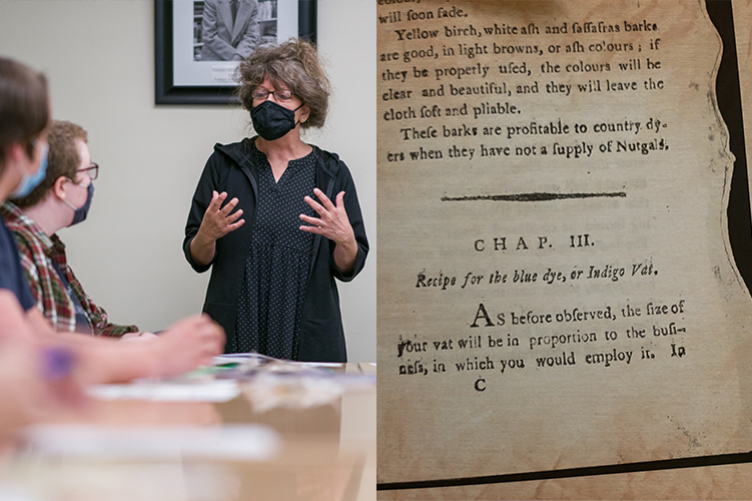 will soon fade.
Yellow birch, white aſh and ſaſſafras barks
are good, in light browns, or aſh colours; if
they be properly uſed, the colours will be
clear and beautiful, and they will leave the
cloth ſoft and pliable.
Theſe barks are profitable to country dy-
ers when they have not a ſupply of Nutgals,
CHAP. III.
Recipe for the blue dye, or Indigo Vat.
As before obſerved, the ſize of
your vat will be in proportion to the buſi-
neſs, in which you would employ it. In
C